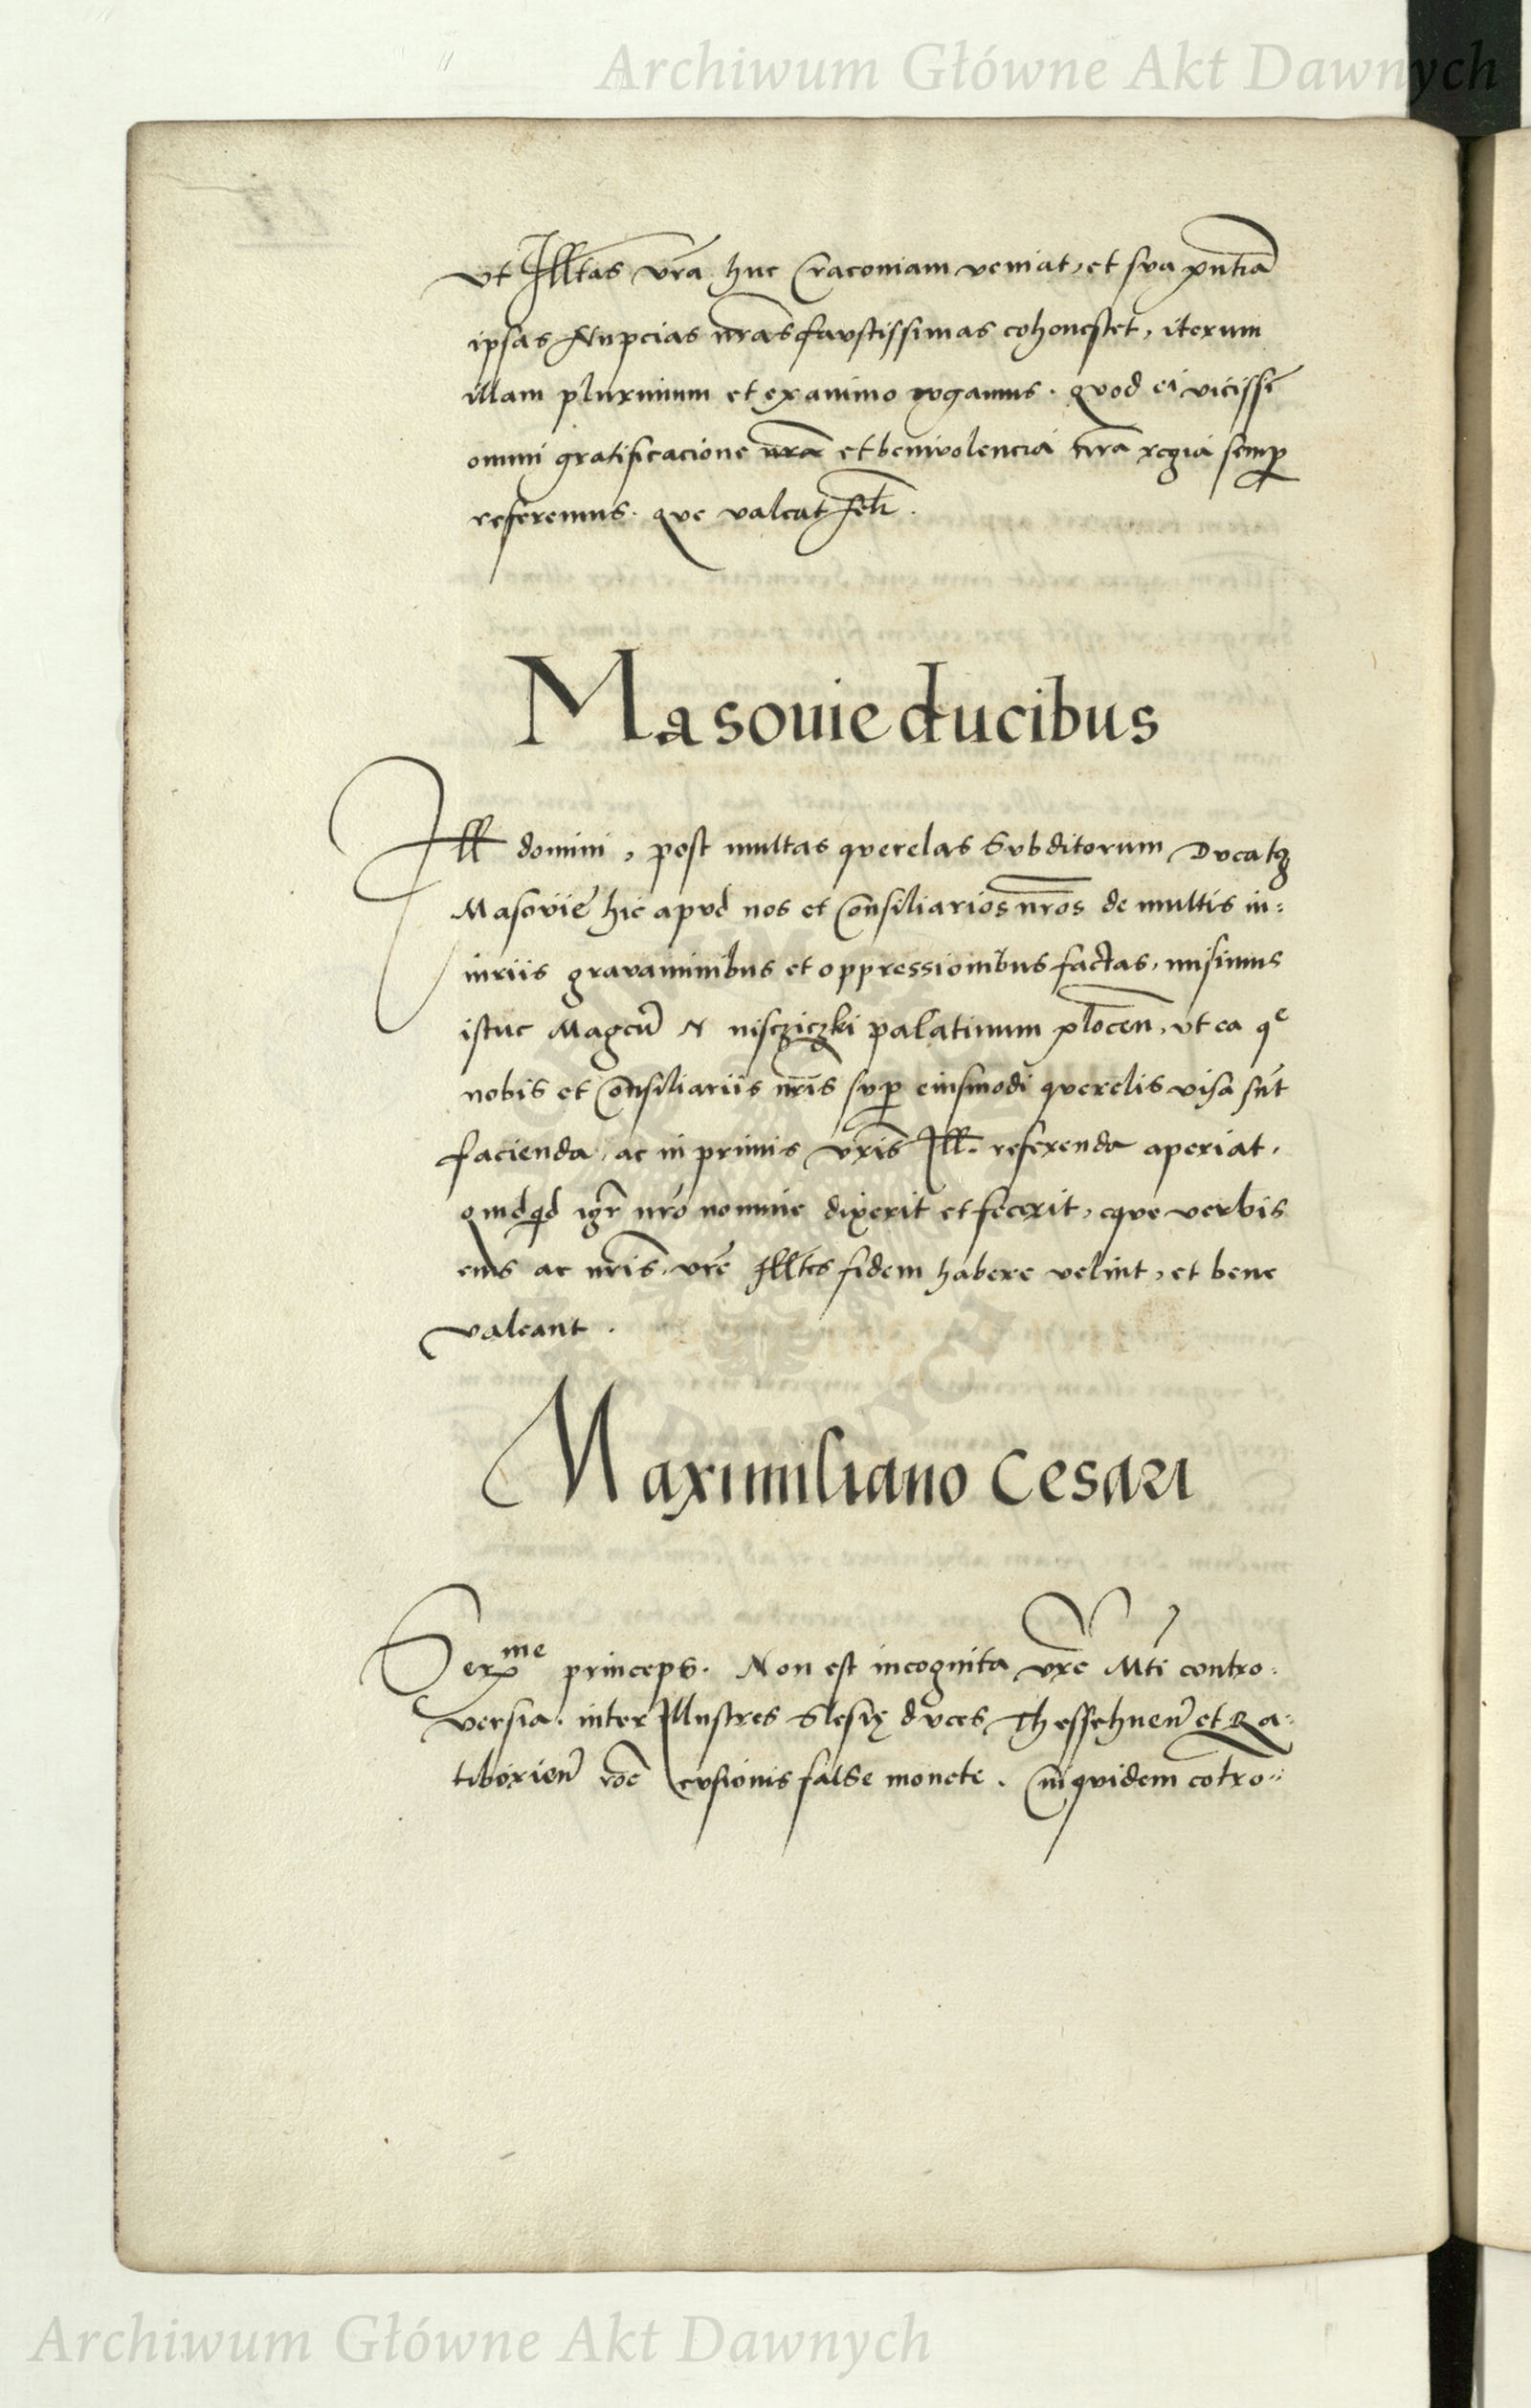 Archiwum Główne Akt Dawnych
vt Illtas vrā huc Cracouiam veniat, et sua pntia
ipsas Nupcias nras faustissimas cohonestet, iterum
illam plurimum et ex animo rogamus. quod ei vicissi
omni gratificacione nrā et beniuolencia nrā regia semp
referemus. que valeat feli.
Masouie ducibus
Ill domini, post multas querelas Subditorum Ducatq
Masouie hic apud nos et Consiliarios nros de multis in:
iuriis grauaminibus et oppressionibus factas, misimus
istuc Magcu N niscziczki palatinum plocen, vt ea qe
nobis et Consiliariis nris sup eiusmodi querelis visa sut
facienda, ac in primis vris Ill. referenda aperiat.
quidqd igr nro nomine dixerit et fecerit, eque verbis
eius ac nris. vre Illtes fidem habere velint, et bene
valeant.
Maximiliano Cesari
Serme princeps. Non est incognita vre Mti contro:
uersia. inter Illustres Slesię duces Thesschnen et Ra:
tiborien roe cusionis false monete. in quidem cotro:
Archiwum Główne Akt Dawnych